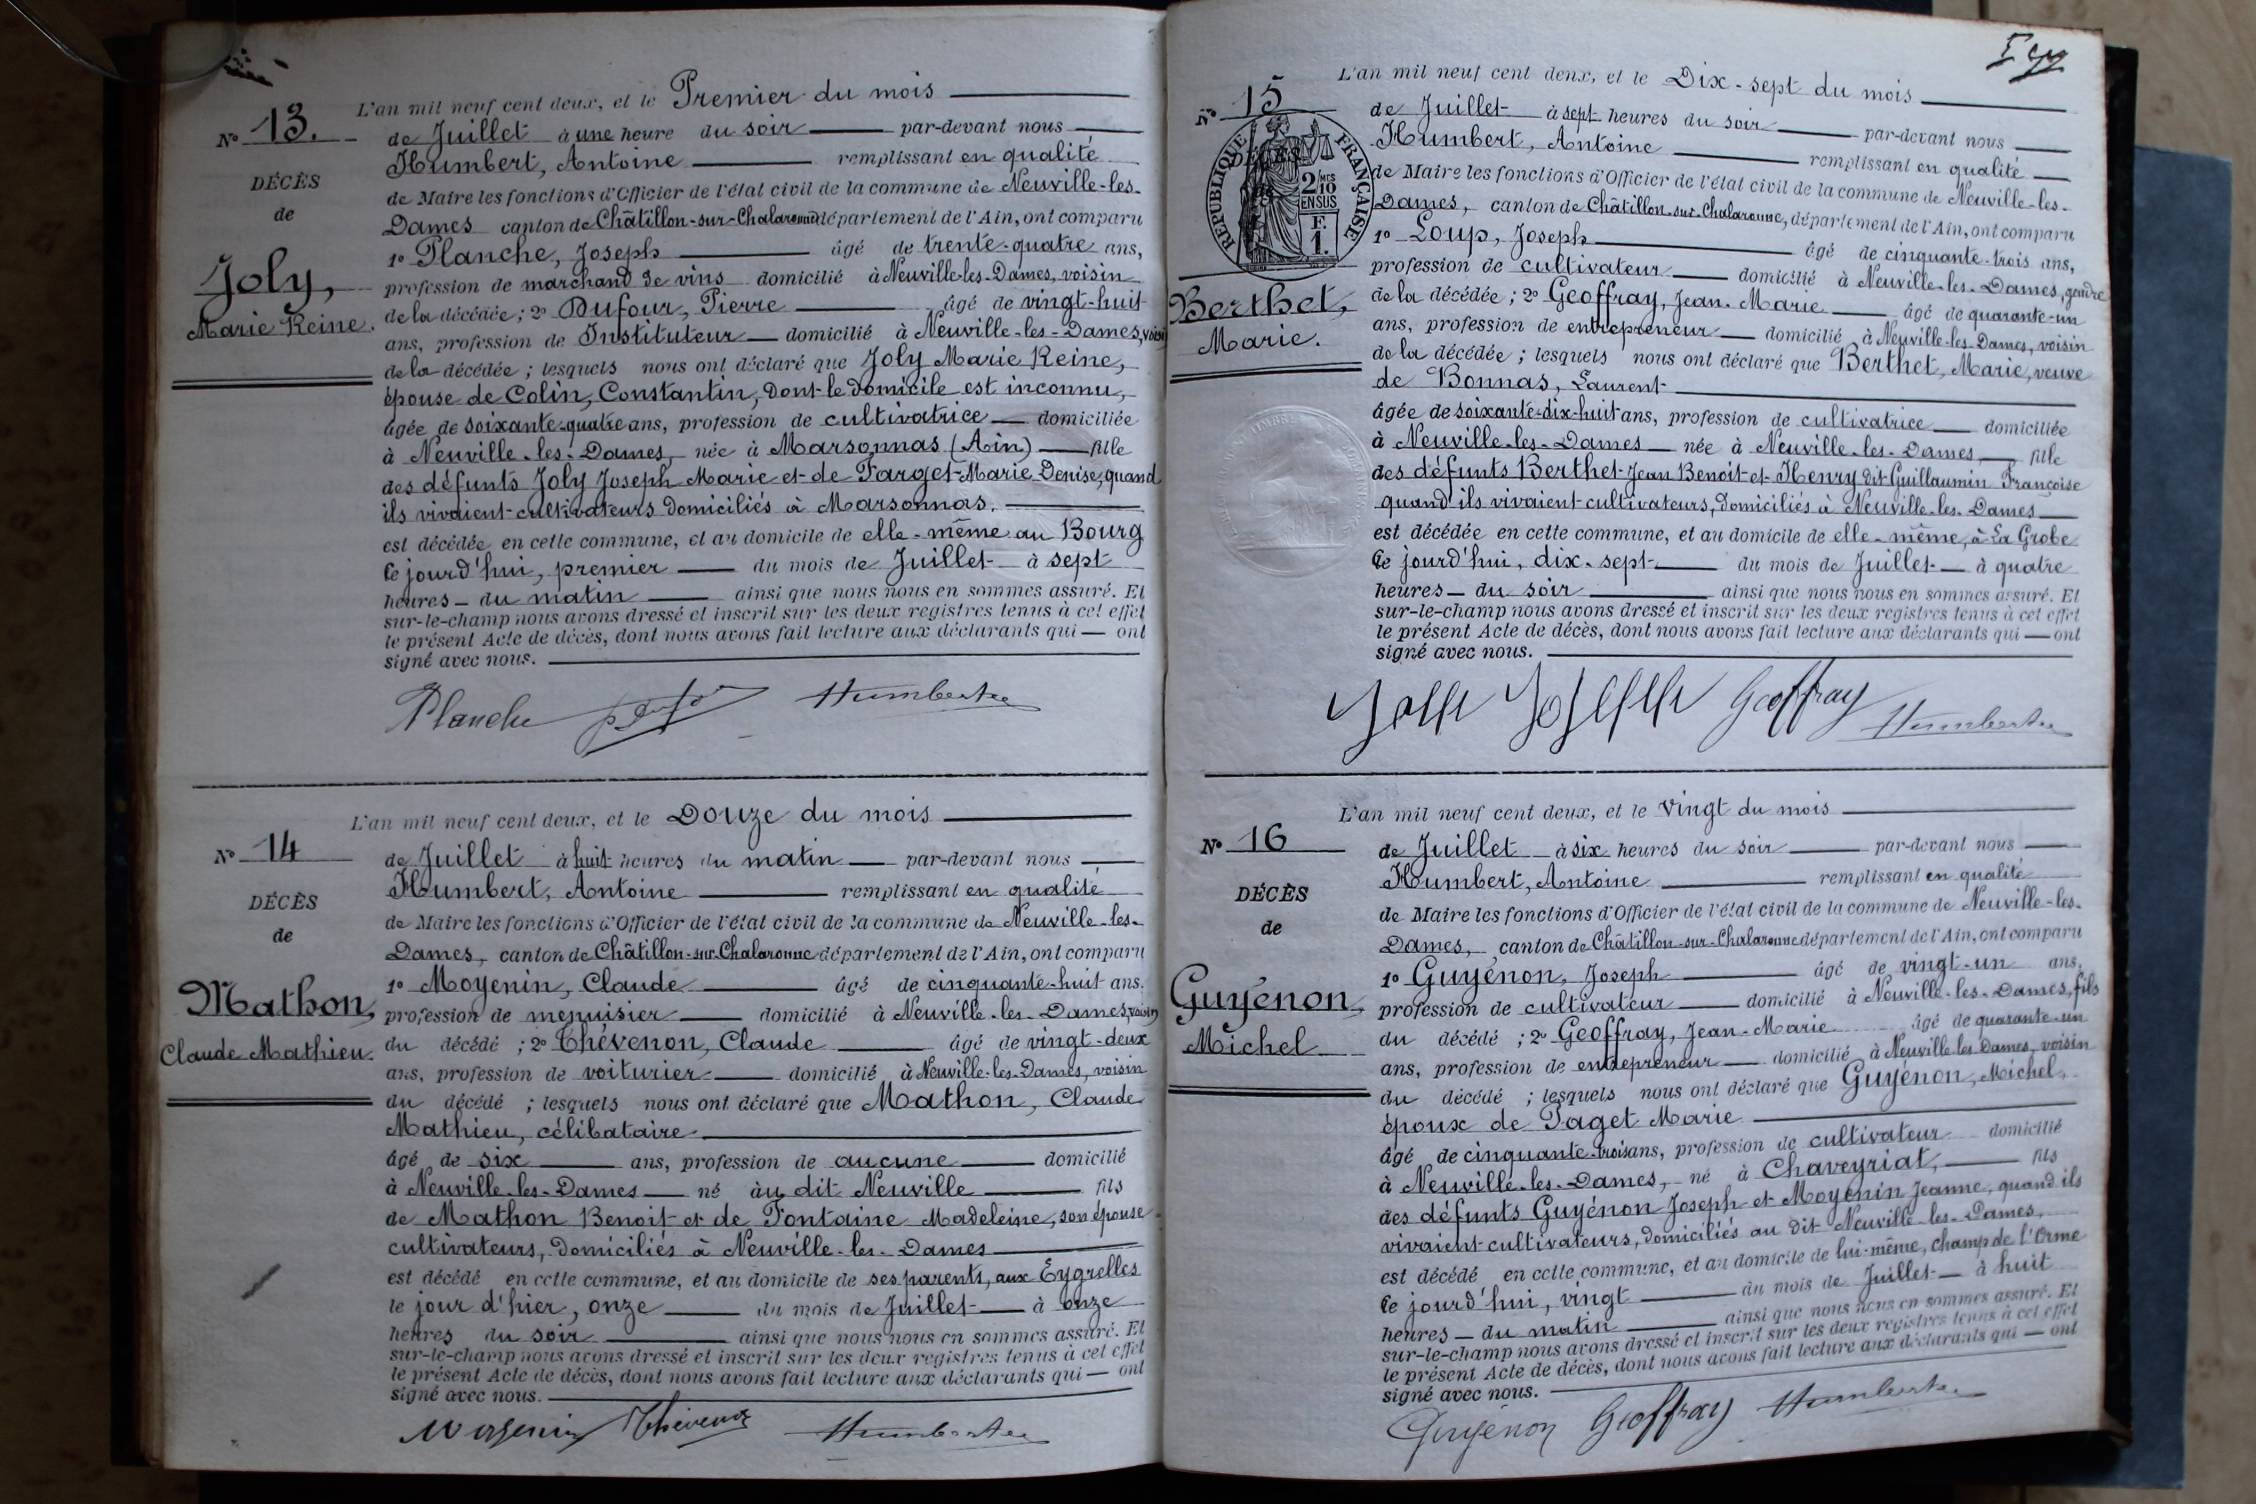 N° 13.
DÉCÈS
de
Joly,
Marie Reine.
L'an mil neuf cent deux, et le Premier du mois
de Juillet à une heure du soir par-devant nous
Humbert, Antoine remplissant en qualité
de Maire les fonctions d'Officier de l'état civil de la commune de Neuville-les-
Dames canton de Châtillon-sur-Chalaronne département de l'Ain, ont comparu
1° Planche, Joseph âgé de trente-quatre ans,
profession de marchand de vins domicilié à Neuville-les-Dames, voisin
de la décédée; 2° Dufour, Pierre âgé de vingt-huit
ans, profession de Instituteur domicilié à Neuville-les-Dames, voisin
de la décédée; lesquels nous ont déclaré que Joly Marie Reine,
épouse de Colin, Constantin, dont le domicile est inconnu,
âgée de soixante-quatre ans, profession de cultivatrice domiciliée
à Neuville-les-Dames, née à Marsonnas (Ain) fille
des défunts Joly Joseph Marie et de Farget Marie Denise, quand
ils vivaient cultivateurs domiciliés à Marsonnas.
est décédée en cette commune, et au domicile de elle-même au Bourg
ce jourd'hui, premier du mois de Juillet à sept
heures du matin ainsi que nous nous en sommes assuré. Et
sur-le-champ nous avons dressé et inscrit sur les deux registres tenus à cet effet
le présent Acte de décès, dont nous avons fait lecture aux déclarants qui ont
signé avec nous.
Planche Humbert
N° 14
DÉCÈS
de
Mathon,
Claude Mathieu.
L'an mil neuf cent deux, et le Douze du mois
de Juillet à huit heures du matin par-devant nous
Humbert, Antoine remplissant en qualité
de Maire les fonctions d'Officier de l'état civil de la commune de Neuville-les-
Dames, canton de Châtillon-sur-Chalaronne département de l'Ain, ont comparu
1° Moyenin, Claude âgé de cinquante-huit ans,
profession de menuisier domicilié à Neuville-les-Dames, voisin
du décédé; 2° Thévenon, Claude âgé de vingt-deux
ans, profession de voiturier domicilié à Neuville-les-Dames, voisin
du décédé; lesquels nous ont déclaré que Mathon, Claude
Mathieu, célibataire
âgé de six ans, profession de aucune domicilié
à Neuville-les-Dames né àu dit Neuville fils
de Mathon Benoit et de Fontaine Madeleine, son épouse
cultivateurs, domiciliés à Neuville-les-Dames
est décédé en cette commune, et au domicile de ses parents, aux Eygrelles
le jour d'hier, onze du mois de Juillet à onze
heures du soir ainsi que nous nous en sommes assuré. Et
sur-le-champ nous avons dressé et inscrit sur les deux registres tenus à cet effet
le présent Acte de décès, dont nous avons fait lecture aux déclarants qui ont
signé avec nous.
Moyenin Thévenon Humbert
N° 15
RÉPUBLIQUE FRANÇAISE
DÉCÈS
2/10
EN SUS
F.
1.
Berthet,
Marie.
L'an mil neuf cent deux, et le Dix-sept du mois
de Juillet à sept heures du soir par-devant nous
Humbert, Antoine remplissant en qualité
de Maire les fonctions d'Officier de l'état civil de la commune de Neuville-les-
Dames, canton de Châtillon-sur-Chalaronne, département de l'Ain, ont comparu
1° Loup, Joseph âgé de cinquante-trois ans,
profession de cultivateur domicilié à Neuville-les-Dames, gendre
de la décédée; 2° Geoffray, Jean-Marie âgé de quarante-un
ans, profession de entrepreneur domicilié à Neuville-les-Dames, voisin
de la décédée; lesquels nous ont déclaré que Berthet, Marie, veuve
de Bonnas, Laurent
âgée de soixante-dix-huit ans, profession de cultivatrice domiciliée
à Neuville-les-Dames née à Neuville-les-Dames, fille
des défunts Berthet Jean Benoit et Henry dit Guillaumin Françoise
quand ils vivaient cultivateurs, domiciliés à Neuville-les-Dames
est décédée en cette commune, et au domicile de elle-même, à La Grobe
ce jourd'hui, dix-sept du mois de Juillet à quatre
heures du soir ainsi que nous nous en sommes assuré. Et
sur-le-champ nous avons dressé et inscrit sur les deux registres tenus à cet effet
le présent Acte de décès, dont nous avons fait lecture aux déclarants qui ont
signé avec nous.
Joseph Geoffray Humbert
N° 16
DÉCÈS
de
Guyénon,
Michel
L'an mil neuf cent deux, et le vingt du mois
de Juillet à six heures du soir par-devant nous
Humbert, Antoine remplissant en qualité
de Maire les fonctions d'Officier de l'état civil de la commune de Neuville-les-
Dames, canton de Châtillon-sur-Chalaronne département de l'Ain, ont comparu
1° Guyénon, Joseph âgé de vingt-un ans,
profession de cultivateur domicilié à Neuville-les-Dames, fils
du décédé; 2° Geoffray, Jean-Marie âgé de quarante-un
ans, profession de entrepreneur domicilié à Neuville-les-Dames, voisin
du décédé; lesquels nous ont déclaré que Guyénon, Michel,
époux de Paget Marie
âgé de cinquante-trois ans, profession de cultivateur domicilié
à Neuville-les-Dames, né à Chaveyriat, fils
des défunts Guyénon Joseph et Moyenin Jeanne, quand ils
vivaient cultivateurs, domiciliés au dit Neuville-les-Dames,
est décédé en cette commune, et au domicile de lui-même, champ de l'Orme
ce jourd'hui, vingt du mois de Juillet à huit
heures du matin ainsi que nous nous en sommes assuré. Et
sur-le-champ nous avons dressé et inscrit sur les deux registres tenus à cet effet
le présent Acte de décès, dont nous avons fait lecture aux déclarants qui ont
signé avec nous.
Guyénon Geoffray Humbert